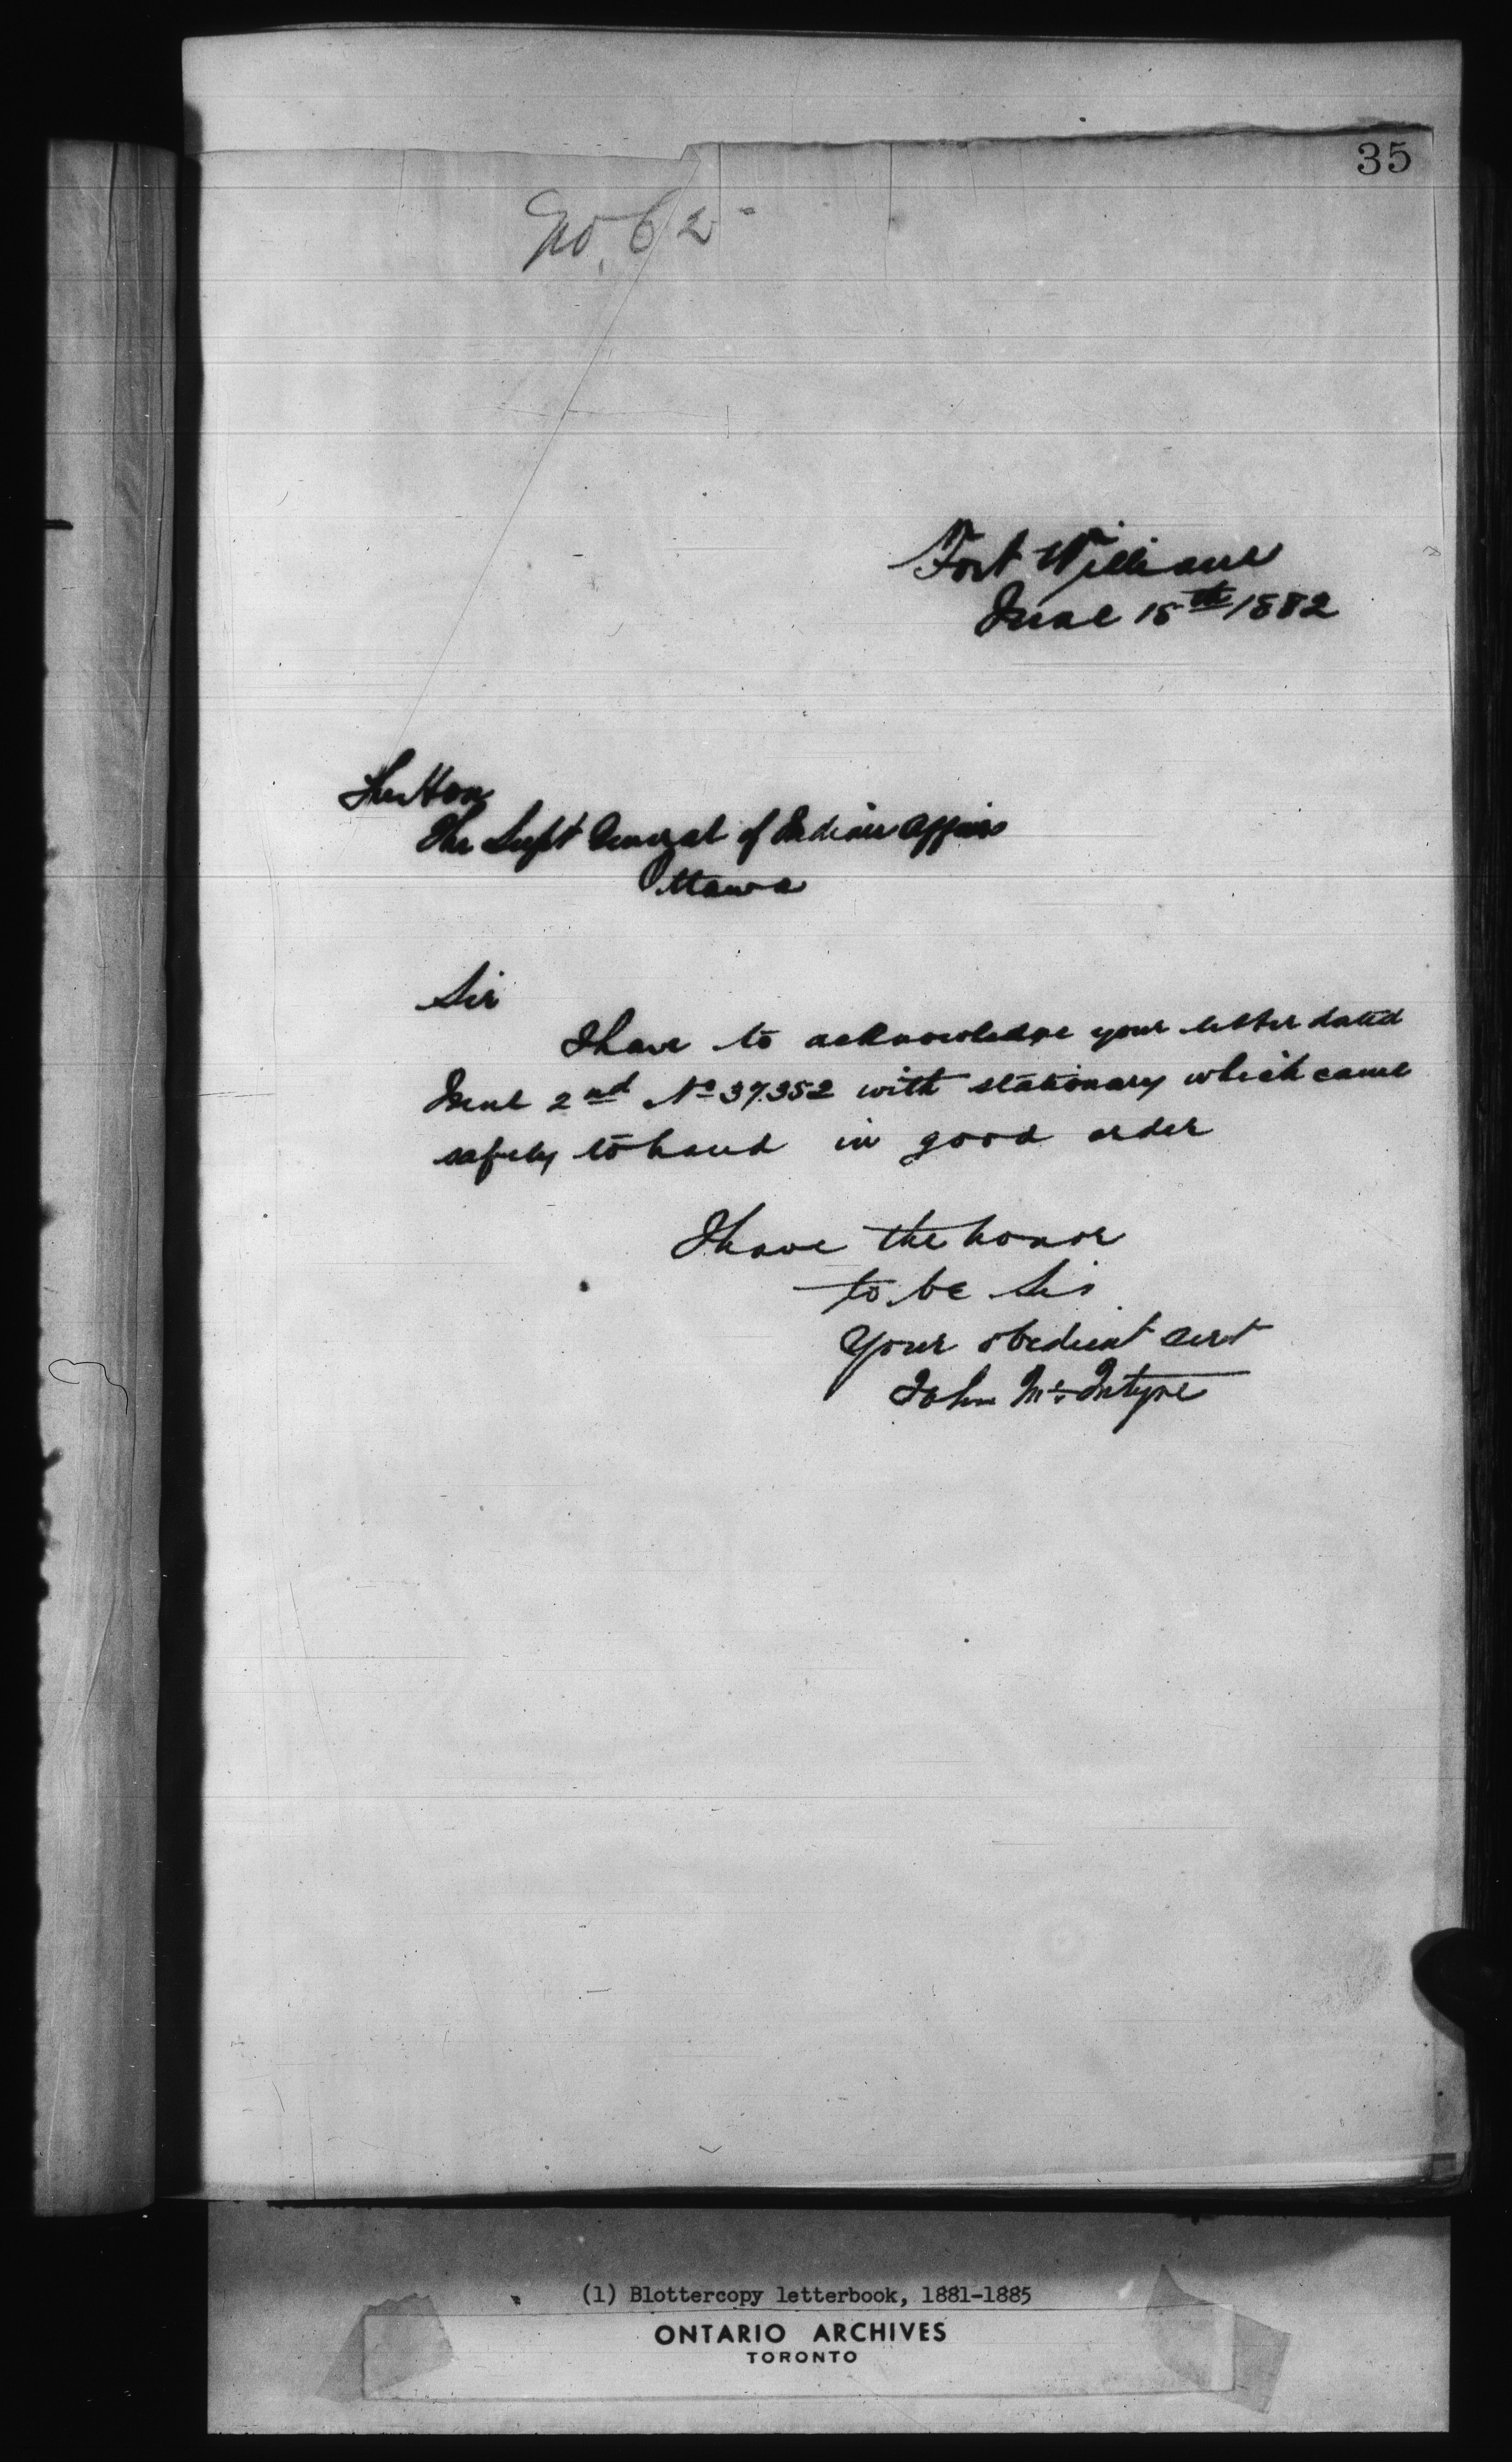 35
No. 62
Fort William
June 15th 1882
The Hon
The Supt General of Indian Affairs
Ottawa
Sir
I have to acknowledge your letter dated
June 2nd No 37.352 with stationary which came
safely to hand in good order
I have the honor
to be Sir
Your obedient Servt
John McIntyre
(1) Blottercopy letterbook, 1881-1885
ONTARIO ARCHIVES
TORONTO